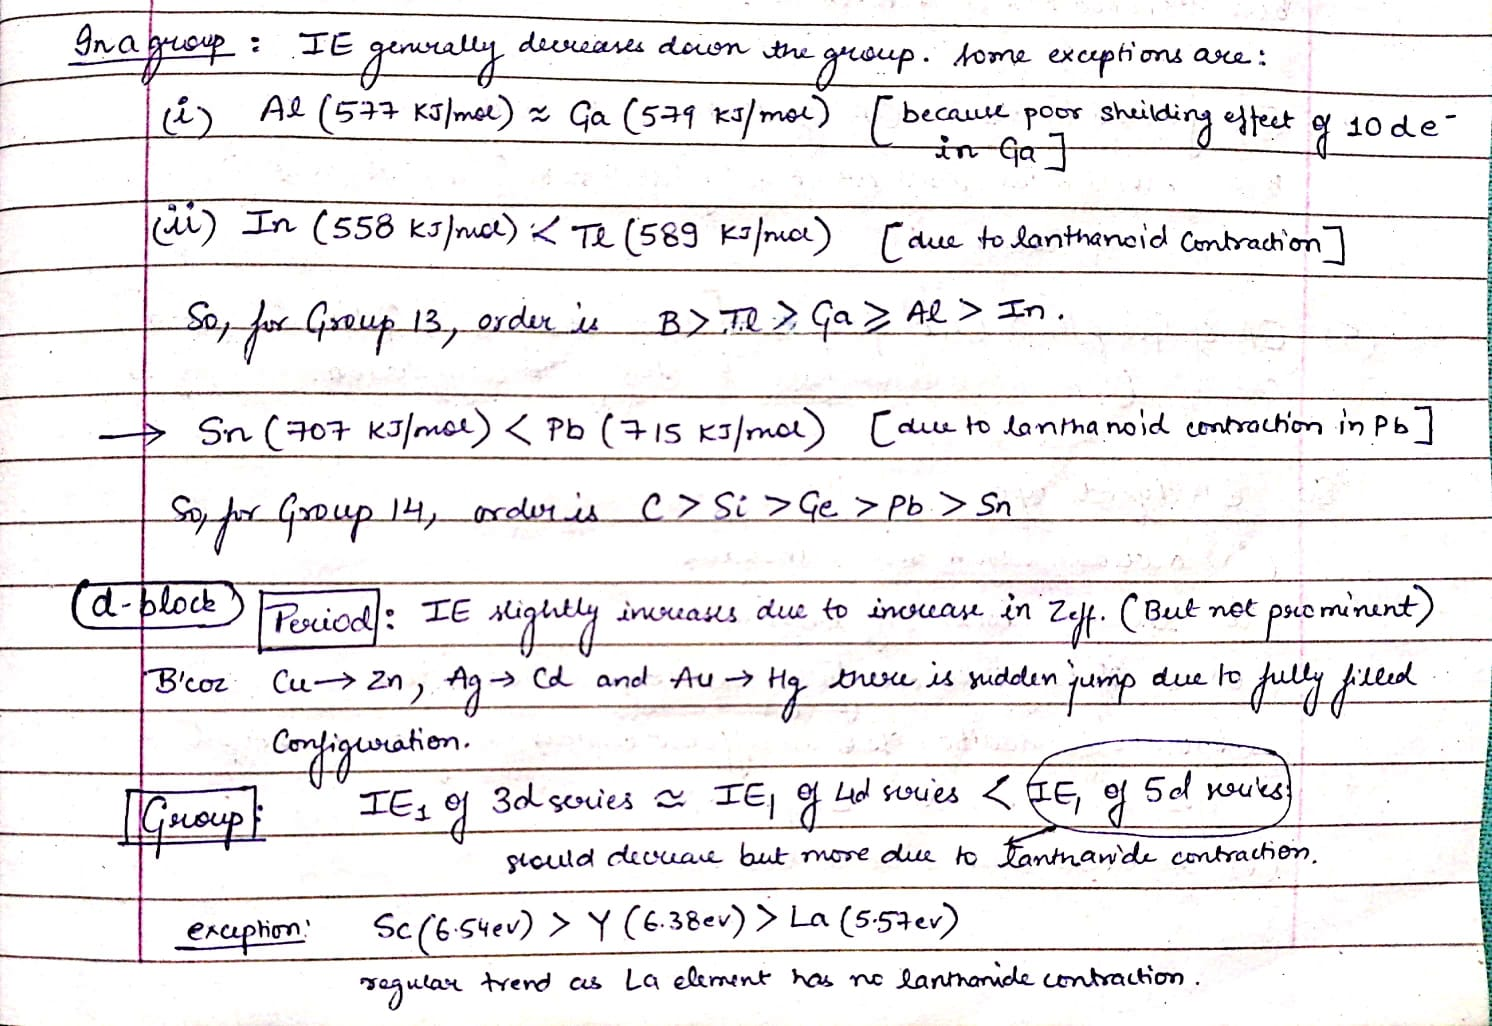 In a group : IE generally decreases down the group. Some exceptions are :
(i) Al (577 KJ/mol) ≈ Ga (579 KJ/mol) [because poor sheilding effect of 10 d e⁻
in Ga]
(ii) In (558 KJ/mol) < Tl (589 KJ/mol) [due to lanthanoid contraction]
So, for Group 13, order is B > Tl > Ga ≥ Al > In.
→ Sn (707 KJ/mol) < Pb (715 KJ/mol) [due to lanthanoid contraction in Pb]
So, for Group 14, order is C > Si > Ge > Pb > Sn
(d-block) Period : IE slightly increases due to increase in Zeff. (But not prominent)
B'coz Cu → Zn, Ag → Cd and Au → Hg there is sudden jump due to fully filled
Configuration.
Group : IE₁ of 3d series ≈ IE₁ of 4d series < IE₁ of 5d series
should decrease but more due to lanthanide contraction.
exception: Sc (6.54ev) > Y (6.38ev) > La (5.57ev)
regular trend as La element has no lanthanide contraction.